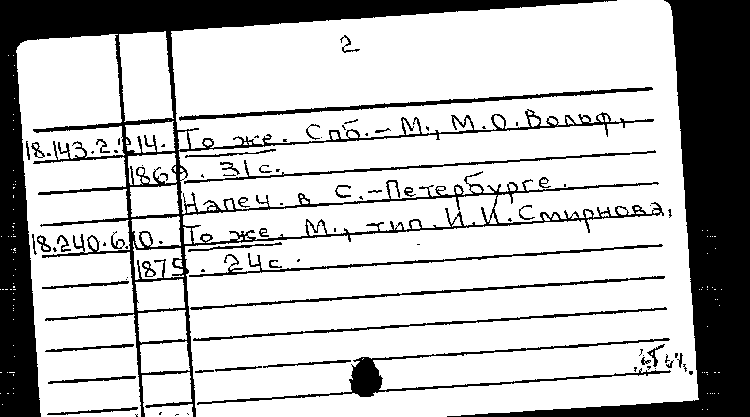 2
18.143.2.214. То же. Спб.–М., М.О.Вольф,
1869. 31с.
Напеч. в С.-Петербурге.
18.240.6.10. То же. М., тип. И.И.Смирнова,
1875. 24с.